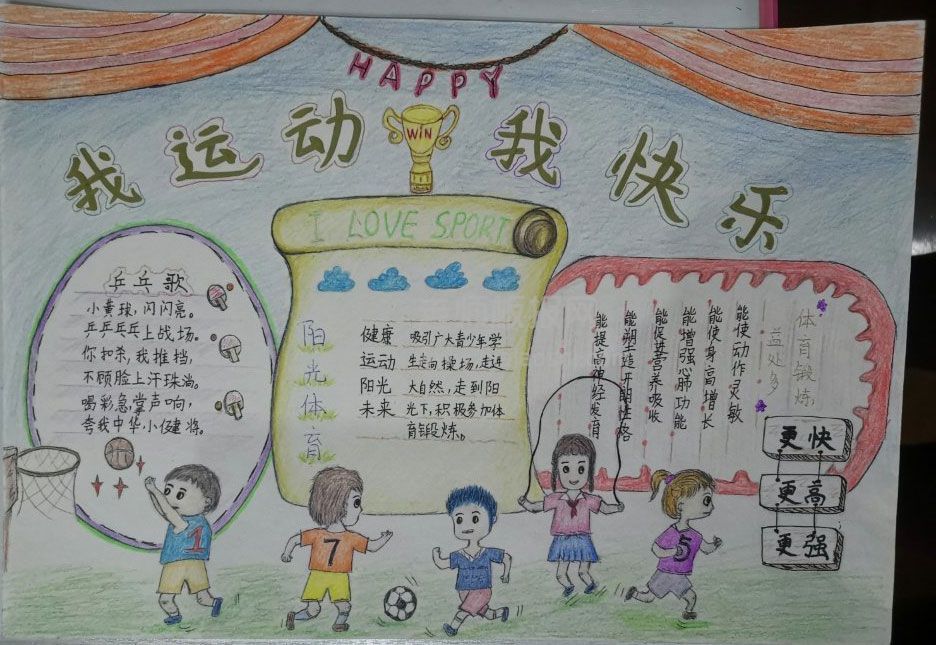 HAPPY
我运动
WIN
我快乐
I LOVE SPORT
乒乓歌
小黄球,闪闪亮。
乒乒乓乓上战场。
你扣杀,我推挡,
不顾脸上汗珠淌。
喝彩急掌声响,
夸我中华小健将。
阳光体育
健康
运动
阳光
未来
吸引广大青少年学
生走向操场,走进
大自然,走到阳
光下,积极参加体
育锻炼。
体育锻炼,
益处多
能使动作灵敏
能使身高增长
能增强心肺功能
能促营养吸收
能塑造开朗性格
能提高神经发育
更快
更高
更强
1
7
5